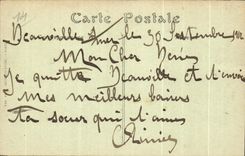 Carte Postale
Deauville le 30 Septembre
Mon Cher
Je quitte Deauville et t'envoie
Mes meilleurs baisers
Ta soeur qui t'aime